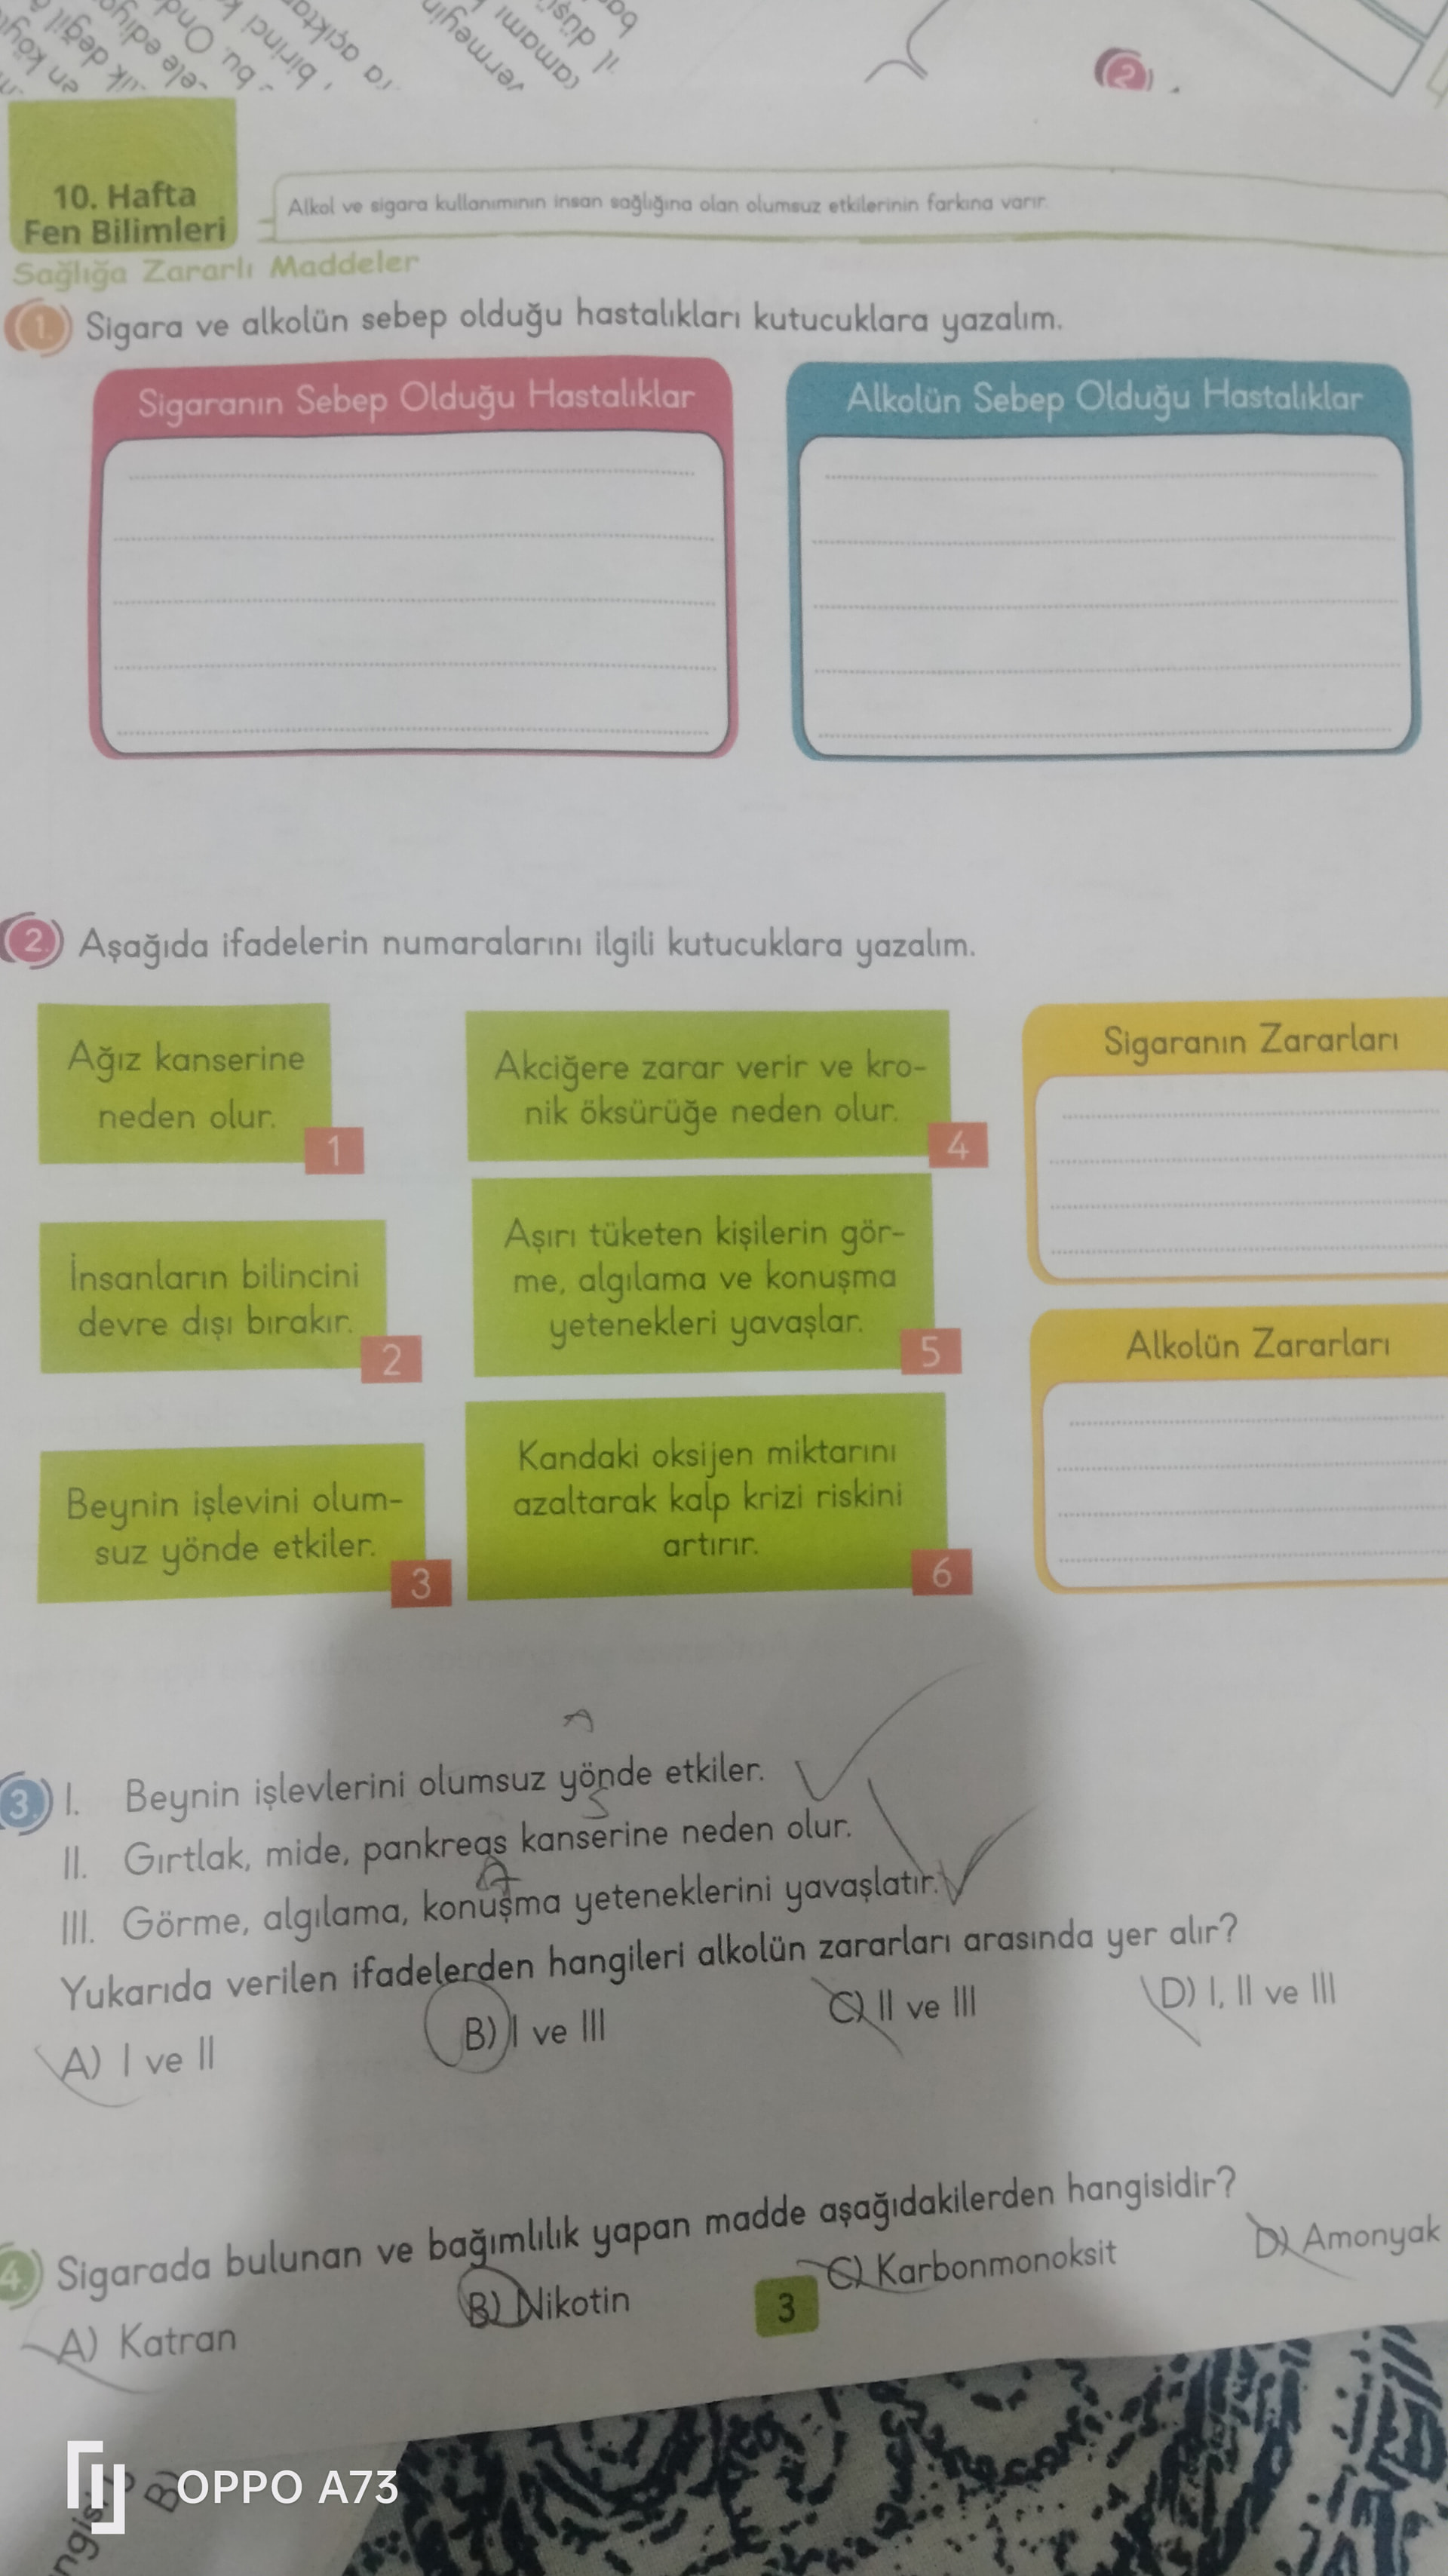 2
10. Hafta
Fen Bilimleri
Alkol ve sigara kullanımının insan sağlığına olan olumsuz etkilerinin farkına varır.
Sağlığa Zararlı Maddeler
1. Sigara ve alkolün sebep olduğu hastalıkları kutucuklara yazalım.
Sigaranın Sebep Olduğu Hastalıklar
Alkolün Sebep Olduğu Hastalıklar
2. Aşağıda ifadelerin numaralarını ilgili kutucuklara yazalım.
Ağız kanserine
neden olur.
1
İnsanların bilincini
devre dışı bırakır.
2
Beynin işlevini olum-
suz yönde etkiler.
3
Akciğere zarar verir ve kro-
nik öksürüğe neden olur.
4
Aşırı tüketen kişilerin gör-
me, algılama ve konuşma
yetenekleri yavaşlar.
5
Kandaki oksijen miktarını
azaltarak kalp krizi riskini
artırır.
6
Sigaranın Zararları
Alkolün Zararları
A
3. I. Beynin işlevlerini olumsuz yönde etkiler.
S
II. Gırtlak, mide, pankreas kanserine neden olur.
A
III. Görme, algılama, konuşma yeteneklerini yavaşlatır.
Yukarıda verilen ifadelerden hangileri alkolün zararları arasında yer alır?
A) I ve II B) I ve III C) II ve III D) I, II ve III
4. Sigarada bulunan ve bağımlılık yapan madde aşağıdakilerden hangisidir?
A) Katran B) Nikotin C) Karbonmonoksit D) Amonyak
3
B)
OPPO A73